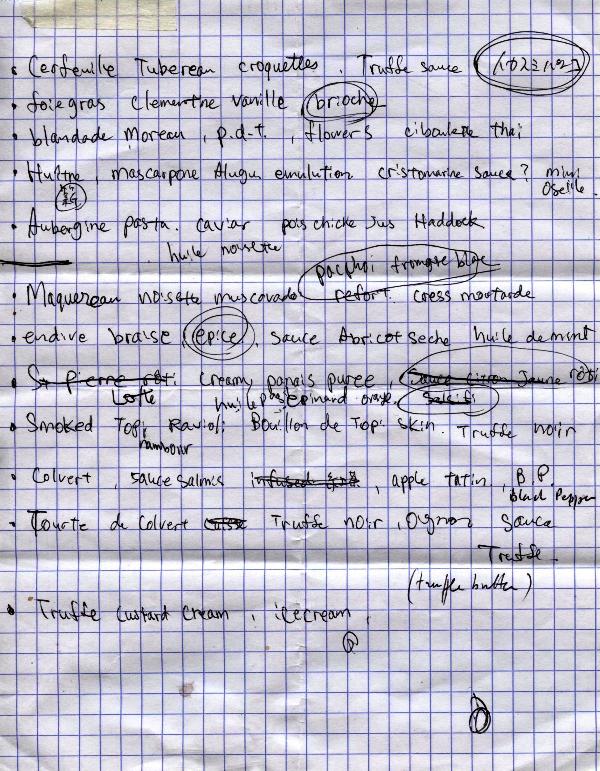 • Cerfeuille Tubereau croquettes. Truffe sauce
• foiegras clementhe vanille brioche
• blandade Moreau, p.d-t., flowers ciboulette thai
• Huître, mascarpone emulution cristomarine sauce? mini
Oseille.
• Aubergine pasta. caviar pois chiche Jus Haddock
huile noisette
fromage blac
• Maquereau noisette muscovado refort. cress moutarde
• endive braise, épice, sauce Abricot seche huile de mint
• St pierre roti creamy panais puree, Sauce Citron Jaune roti
Lotte huile epinard orange, Salsifi
• Smoked Topi Ravioli Bouillon de Topi skin. Truffe noir
• Colvert, sauce salmis infused, apple tatin, B.P.
Black Pepper
• Tourte de Colvert Truffe noir, Oignon sauce
Truffe
(truffe butter)
• Truffe custard cream, icecream,